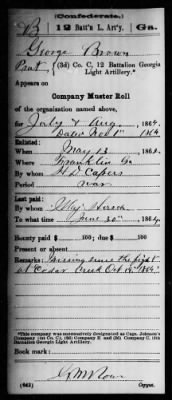 (Confederate.)
B 12 Batt'n L. Art'y. Ga.
George Brown
Pvt., {(3d) Co. C, 12 Battalion Georgia
Light Artillery.*
Appears on
Company Muster Roll
of the organization named above,
for July & Aug, 1864.
Dated Nov 1st 1864
Enlisted:
When May 13, 1862.
Where Franklin Ga
By whom H D Capers
Period war
Last paid:
By whom Hirsch
To what time June 30th, 1864.
Bounty paid $ 100; due $ 100
Present or absent
Remarks: Missing since the fight
at Cedar Creek Oct 19 1864
*This company was successively designated as Capt. Johnson's
Company, (1st) Company E and (3d) Company C, 12th
Battalion Georgia Light Artillery.
Book mark:
(642) Copyist.